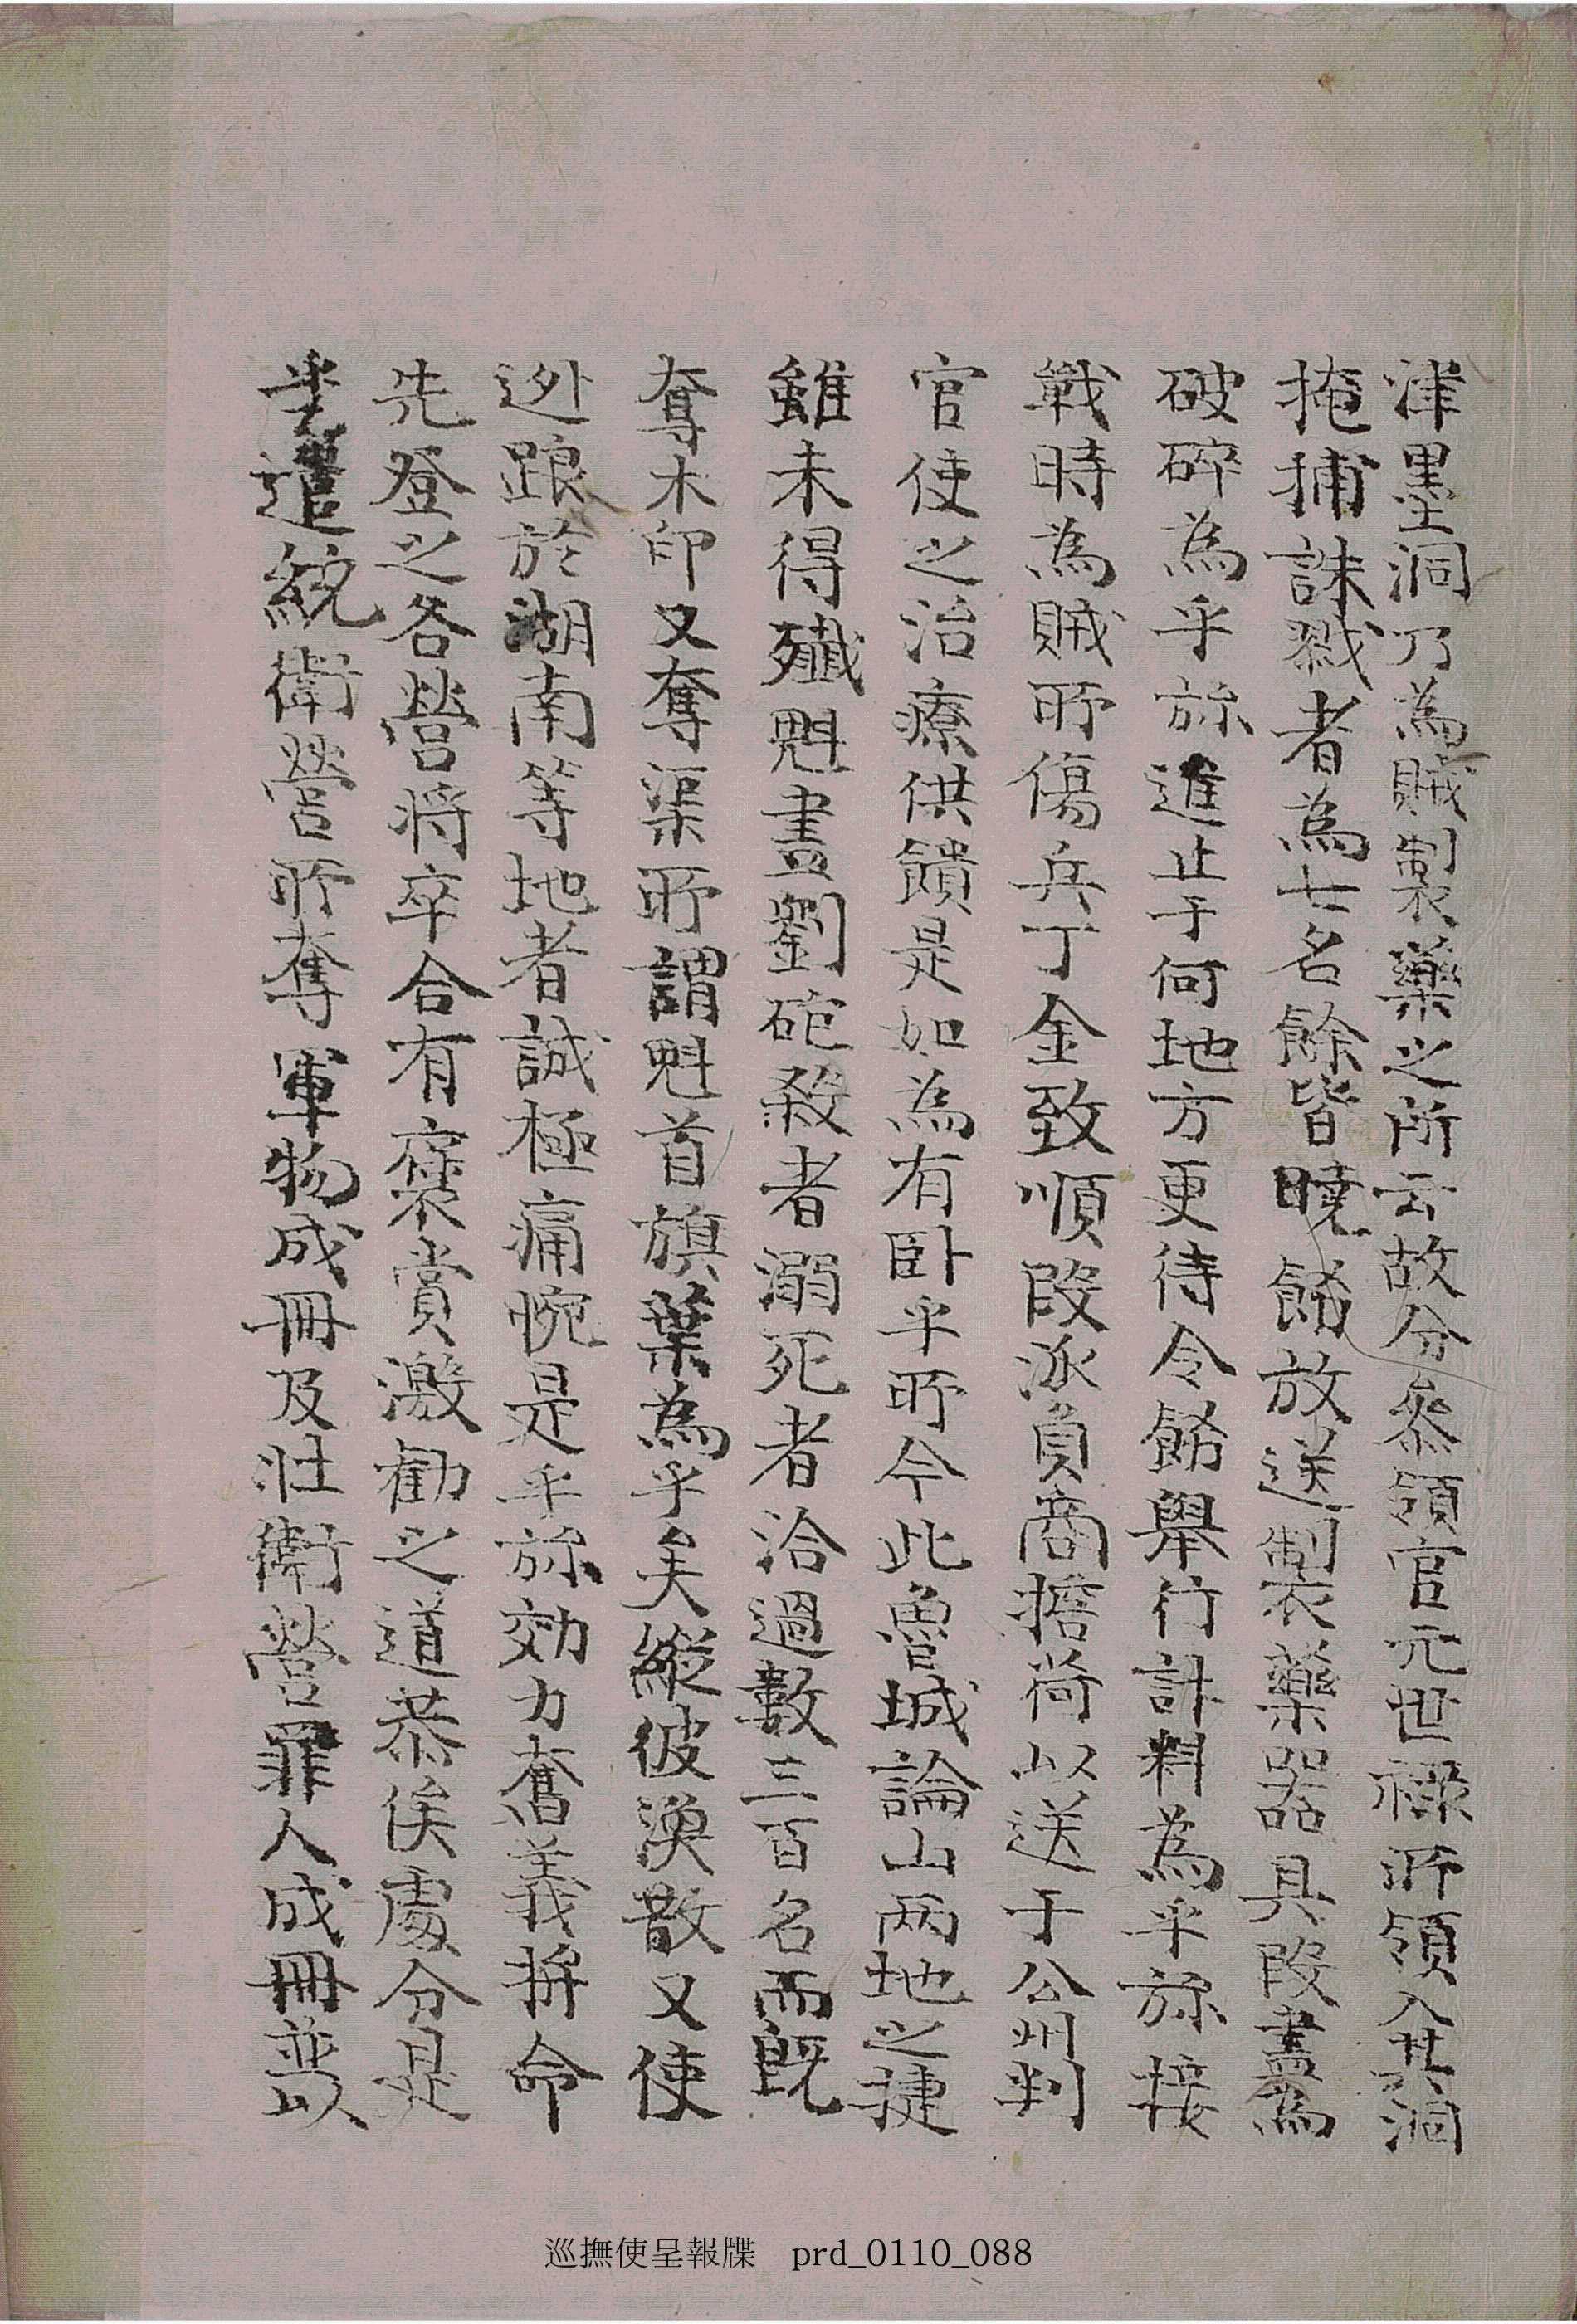 津墨洞乃為賊製藥之所云故分叅領官元世祿所領入其洞
掩捕誅戮者為七名餘皆曉餙放送製藥器具段盡為
破碎為乎旀進止于何地方更待令餙舉行計料為乎旀接
戰時為賊所傷兵丁金致順段派負商擔尙以送于公州判
官使之治療供饋是如為有卧乎所今此魯城論山两地之捷
雖未得殲魁盡劉砲殺者溺死者洽過數三百名而旣
奪木印又奪渠所謂魁首旗葉為乎矣縱彼渙散又使
迯踉於湖南等地者誠極痛惋是乎旀効力奮義拚命
先登之各營將卒合有褒賞激勸之道恭俟處分是
乎遣統衛營所奪軍物成冊及壯衛營罪人成冊並以
巡撫使呈報牒 prd_0110_088